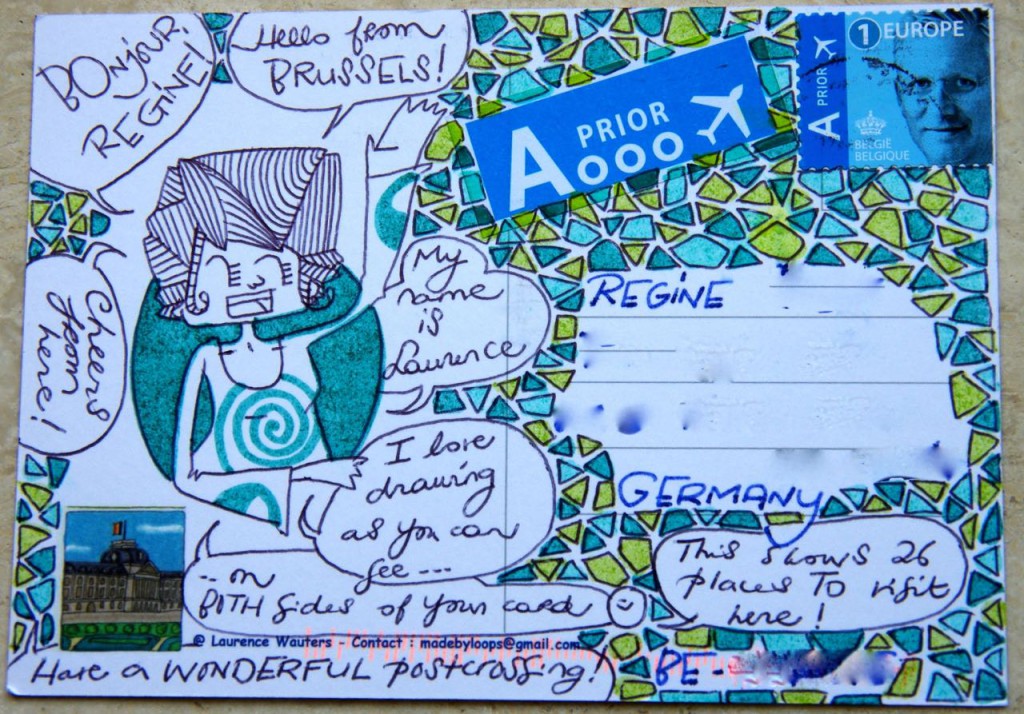 BOnjour,
REGINE!
Hello from
BRUSSELS!
A PRIOR
1 EUROPE
A PRIOR
BELGIE
BELGIQUE
My
name
is
Laurence
Cheers
from
here!
REGINE
I love
drawing
as you can
see...
GERMANY
.. on
BOTH sides of your card
This shows 26
places to visit
here!
@ Laurence Wauters - Contact : madebyloops@gmail.com
Have a WONDERFUL postcrossing!
BE-